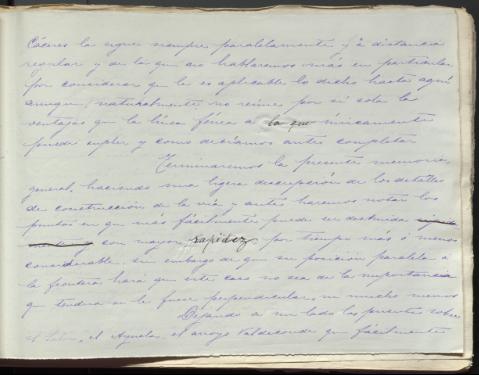 Cáceres la sigue siempre paralelamente y á distancia
regular y de la que no hablaremos más en particular
por considerar que le es aplicable lo dicho hasta aquí
aunque, naturalmente no reune por si sola la
ventajas que la línea férrea al la que unicamente
puede suplir y como deciamos antes completar
Terminaremos la presente memoria
general, haciendo una ligera descripción de los detalles
de construcción de la via y antes haremos notar los
puntos en que más fácilmente puede ser destruida
con mayor rapidez por tiempo más ó menos
considerable sin embargo de que su posición paralela á
la frontera hará que este caso no sea de la importancia
que tendria si le fuese perpendicular, ni mucho menos
Dejando á un lado los puentes sobre
el el Ayuela, el arroyo Valdeconde que fácilmente